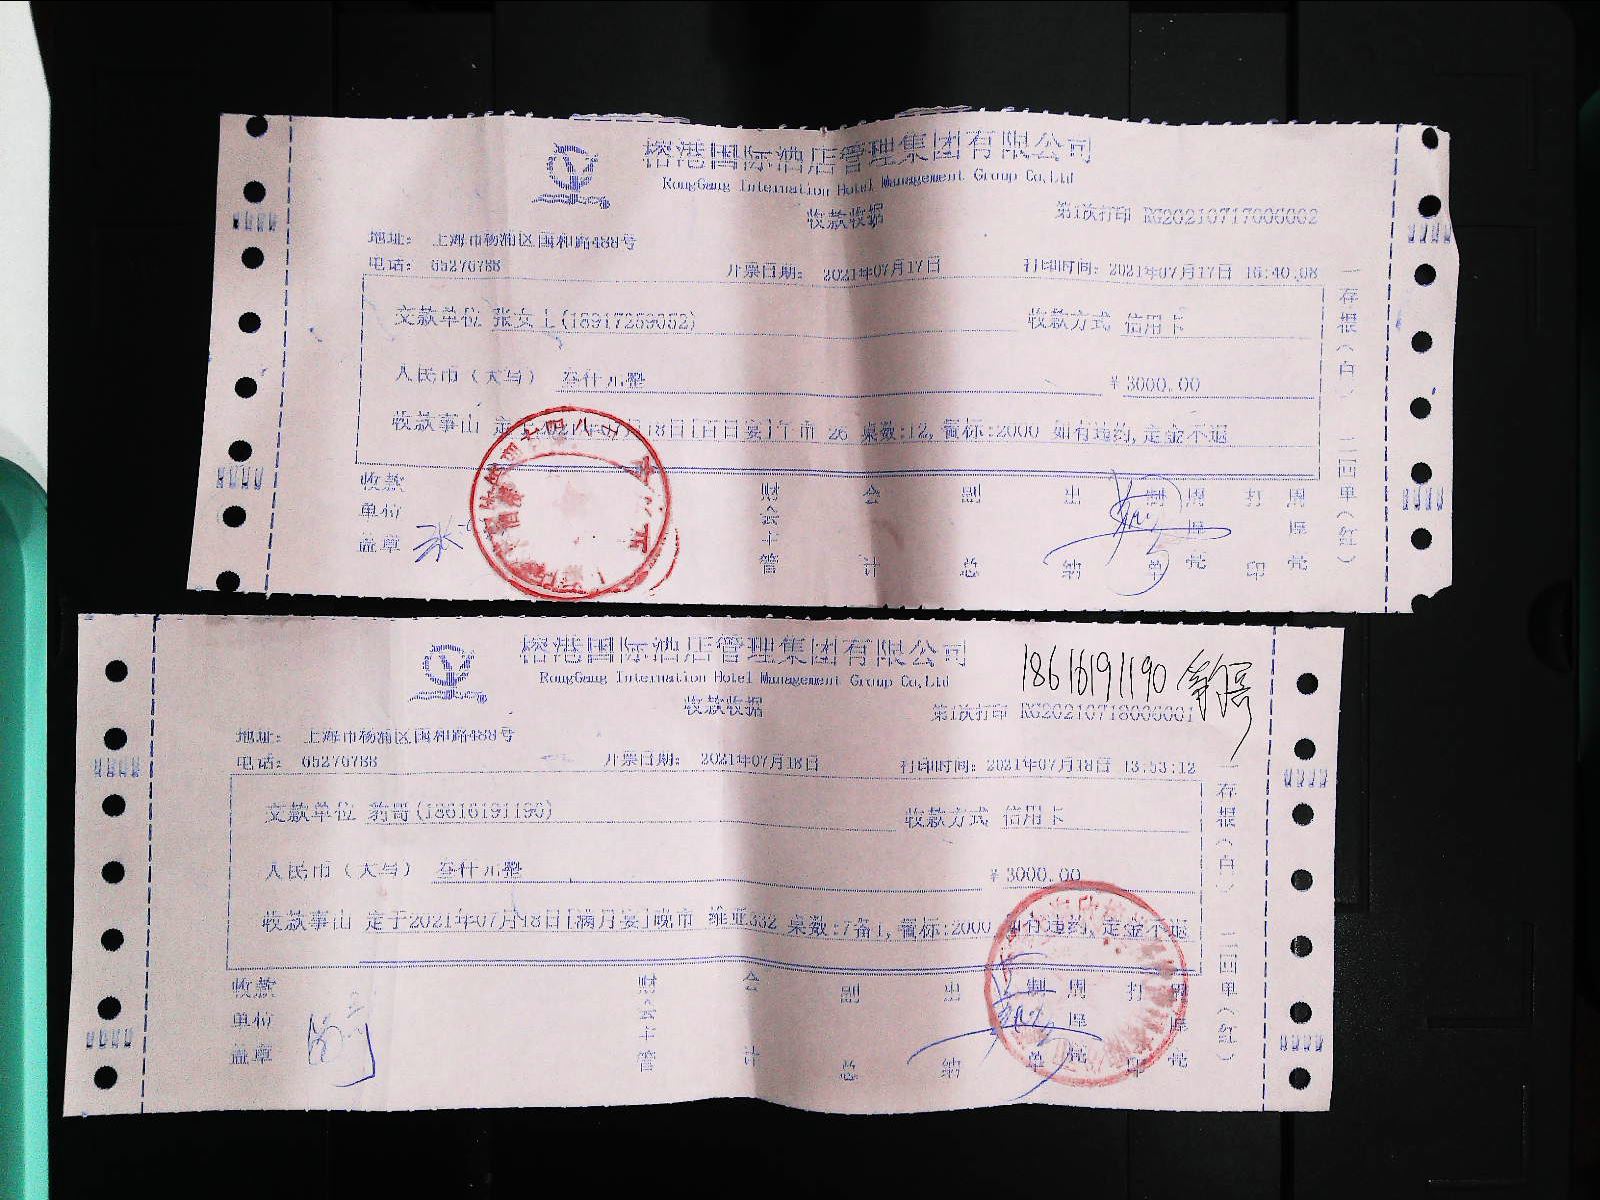 榕港国际酒店管理集团有限公司
RongGang Internation Hotel Management Group Co,Ltd
收款收据
第1次打印 RG20210717006002
地址： 上海市杨浦区国和路488号
电话： 65276788 开票日期： 2021年07月17日 打印时间：2021年07月17日 16:40.08
交款单位 张女士(18917259052) 收款方式 信用卡
人民币（大写） 叁仟元整 ￥3000.00
收款事由 定 月18日[百日宴] 市 26 桌数:12,餐标:2000 如有违约,定金不退
收款单位盖章 财会主管 会计 副总 出纳 制单 周厚亮 打印 周厚亮
存根（白） 二四单（红）
榕港国际酒店管理集团有限公司
RongGang Internation Hotel Management Group Co,Ltd
18616191190
收款收据
第1次打印 RG20210718006001
地址： 上海市杨浦区国和路488号
电话： 65276788 开票日期： 2021年07月18日 打印时间：2021年07月18日 13:53:12
交款单位 豹哥(18616191190) 收款方式 信用卡
人民币（大写） 叁仟元整 ￥3000.00
收款事由 定于2021年07月18日[满月宴]晚市 维亚332 桌数:7备1,餐标:2000 如有违约,定金不退
收款单位盖章 财会主管 会计 副总 出纳 制单 周厚亮 打印 周厚亮
存根（白） 二四单（红）